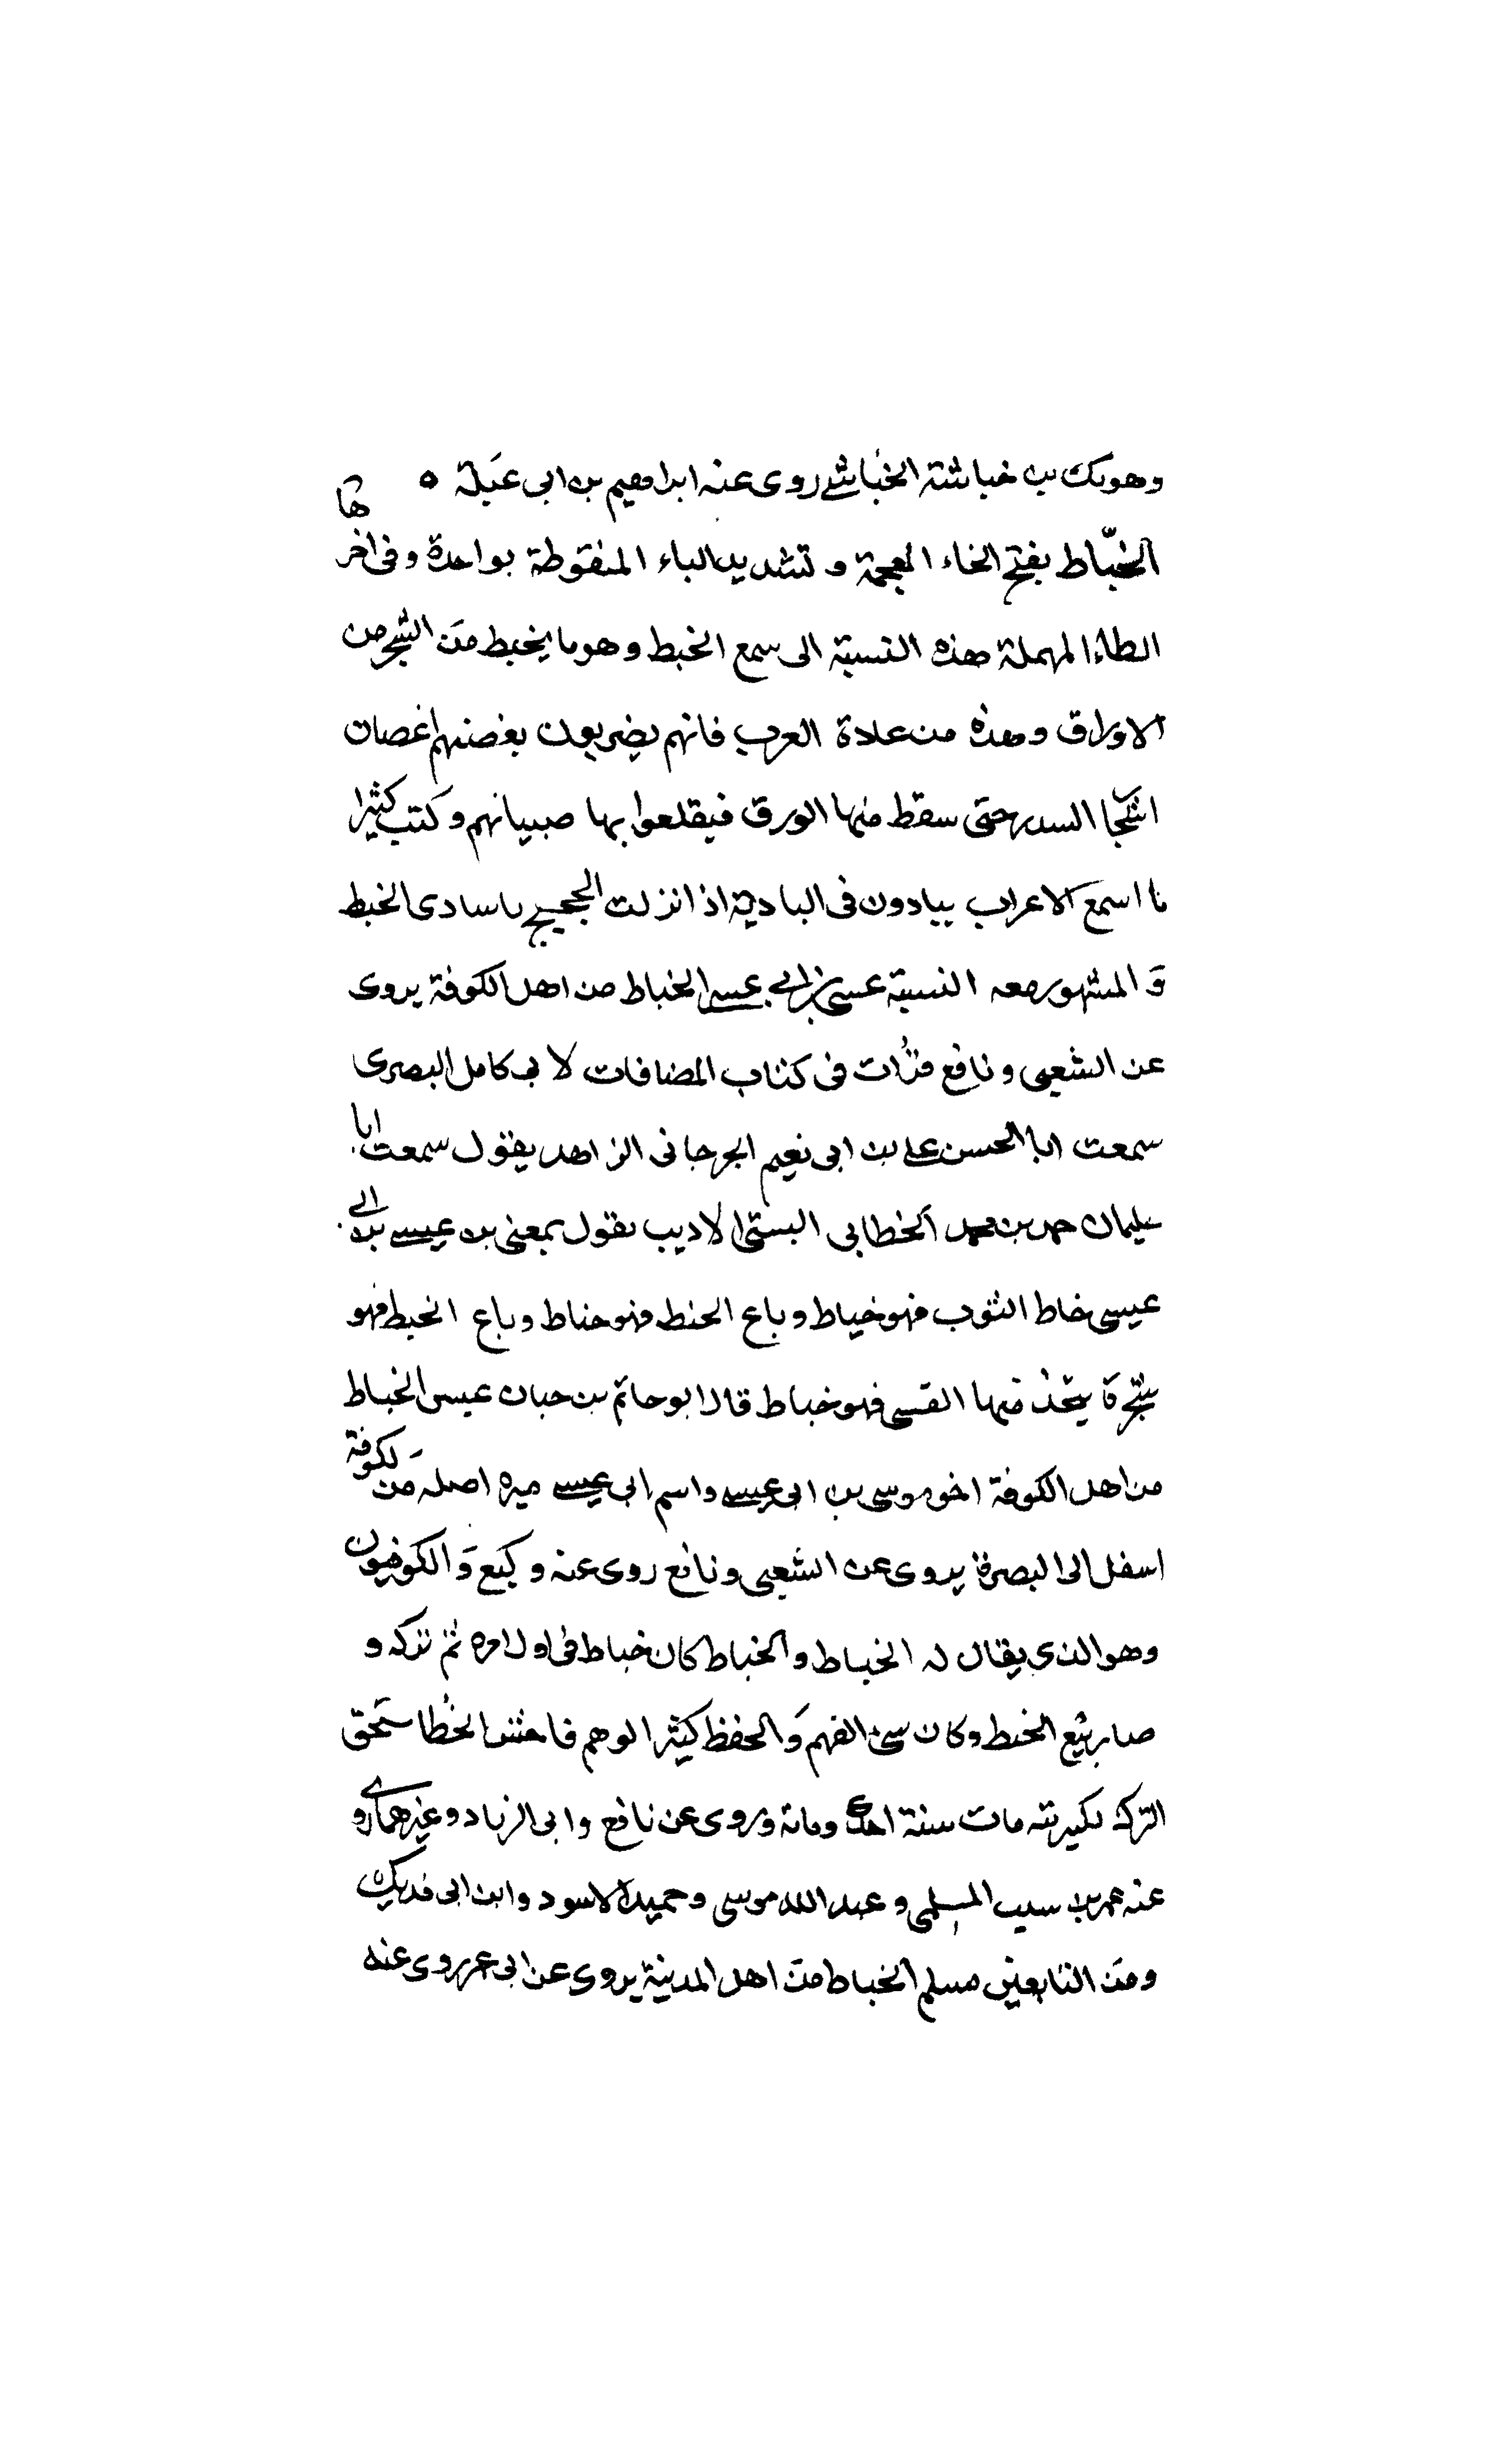 وهو بك بن خباشة الخُباشى روى عنه ابراهيم بن ابى عَبلة ه
الخبّاط بفتح الخاء المعجمة و تشديد الباء المنقوطة بواحدة وفى اخرها
الطاء المهملة هذه النسبة الى سمع الخبط وهو ما يخبط من الشجر من
الاوراق وهذه من عادة العرب فانهم يضربون بغضهم اغصان
اشجار السدر حتى سقط منها الورق فيقلعوا بها صبيانهم وكتب كثيرا
ما اسمع الاعراب ببادون فى البادية اذا نزلت الحجيج باسادى الخبط
وَ المشهور معه النسبة عسى بن ابى عيسى الخباط من اهل الكوفة يروى
عن الشعبى ونافع قرُات فى كتاب المضافات لابى كامل البصرى
سمعت ابا الحسن على بن ابى نعيم الجرجانى الزاهد يقول سمعت ابا
سليمان حمد بن محمد الخطابى البستى الاديب يقول بمعنى بن عيسى بن ابى
عيسى خاط الثوب فهو خياط وباع الحنط فهو حناط وباع الخبط فهو
شجرة يتخذ منها القسى فهو خباط قال ابو حاتم بن حبان عيسى الخباط
من اهل الكوفة اخو موسى بن ابى عيسى واسم ابى عيسى ميره اصله من لكوفة
اسفل الى البصرة يروى عن الشعبى ونافع روى عنه وكيع وَ الكوفيون
وهو الذى يقال له الخباط والخباط كان خباط فى اول امره ثم تركه و
صار يبيع الخبط وكان سئ الفهم وَالحفظ كثير الوهم فاحش الخُطا ستحق
الترك لكيرته مات سنة احدى ومائة وروى عن نافع وابى الزناد وغيرهما رو
عنه عمر بن سيب المسلمى و عبد الله موسى وحميد الاسود وابن ابى فديك
ومن التابعين مسلم الخباط من اهل المدينة يروى عن ابى عمر روى عنه